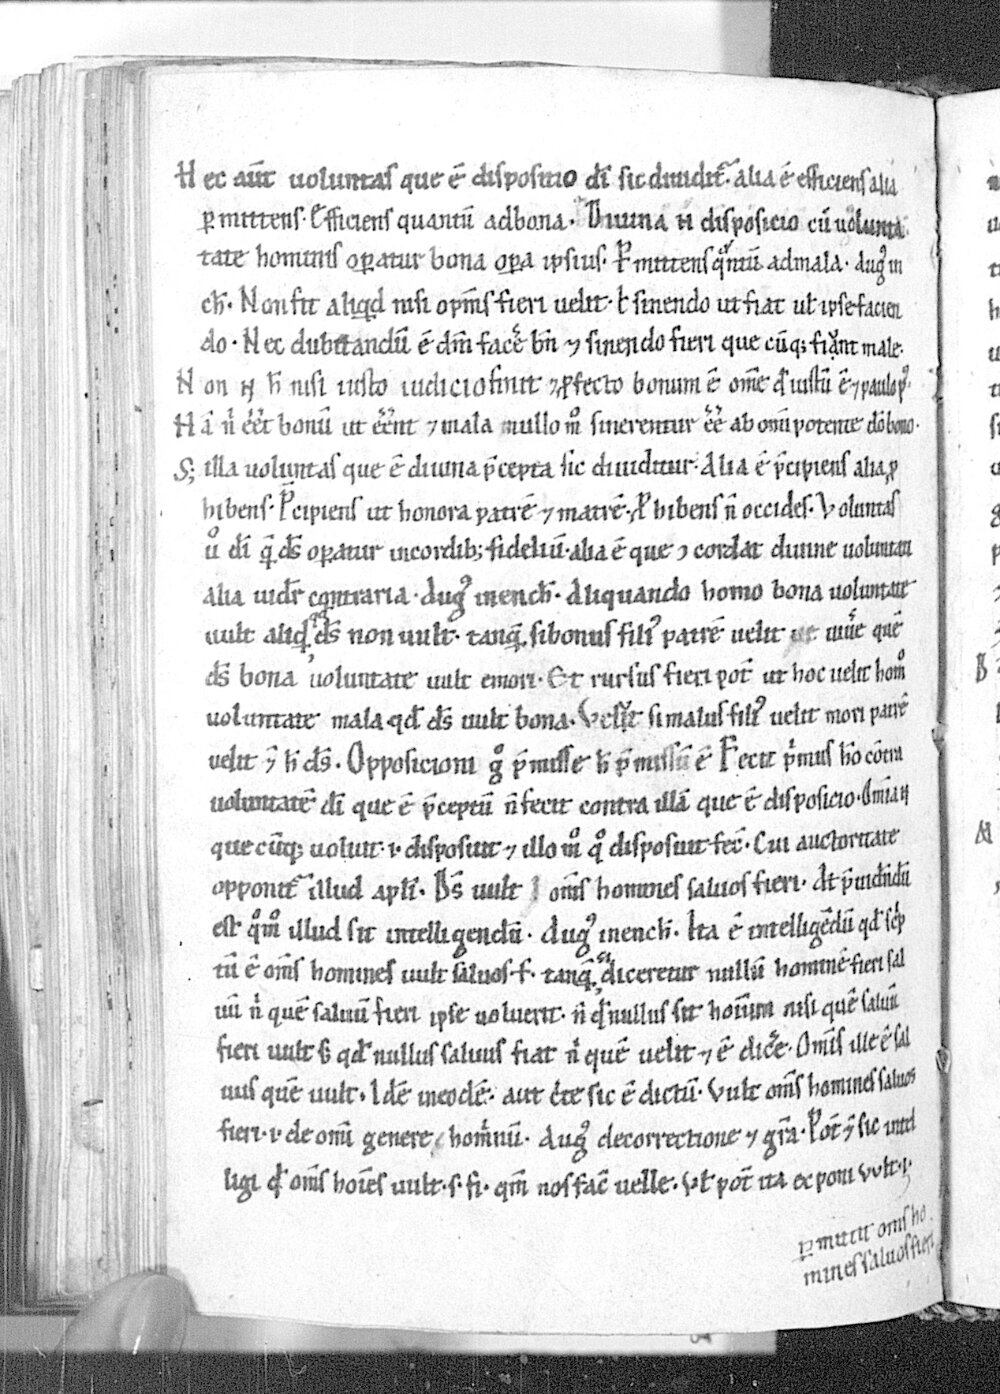 Hec aūt uoluntas que ē dispositio dī sic diuidit᷑. alia ē efficiens alia
ꝑmittens. Efficiens quantū adbona. Diuina n̄ disposicio cū uolunta
tate hominis oꝑatur bona oꝑa ipsius. Ꝑmittens qͣntū admala. Augꝰ in
ench̄. Non fit aliqd nisi oṗms fieri uelit. ł sinendo ut fiat uł ipse facien
do. Nec dubitandū ē dm̄ facē bn̄ ⁊ sinendo fieri que cūq; fiunt male.
Non n̄ h̄ nisi iusto iudicio sinit ⁊ ꝓfecto bonum ē om̄e qđ iustū ē ⁊ paulo pꝰ.
Nā n̄ eēt bonū ut eēnt ⁊ mala nullo mͦ sinerentur eē ab om̄ipotente dō bono.
S; illa uoluntas que ē diuina p̄cepta sic diuiditur. Alia ē p̄cipiens alia ꝓ
hibens. P̄cipiens ut honora patrē ⁊ matrē. Ꝓhibens n̄ occides. Voluntas
ūͦ dī q̄ ds̄ oꝑatur incordib; fideliū. alia ē que ꝯcordat diuine uoluntati
alia uidēt contraria. Augꝰ inench̄. Aliquando homo bona uoluntate
uult aliqd ds̄ non uult. tanq̄ si bonus filiꝰ patrē uelit uiuē quē
ds̄ bona uoluntate uult emori. Et rursus fieri pot̄ ut hoc uelit homͦ
uoluntate mala qđ ds̄ uult bona. Velut si malus filiꝰ uelit mori patrē
uelit ⁊ h̄ ds̄. Opposicioni gͦ p̄misse h̄ p̄missū ē Fecit pͥmus hō cōtra
uoluntatē dī que ē p̄ceptū n̄ fecit contra illā que ē disposicio. Om̄ia n̄
que cūq; uoluit .i. disposuit ⁊ illo mͦ qͦ disposuit fec̄. Cui auctoritate
opponit᷑ illud apłi. Ds̄ uult om̄s homines saluos fieri. At p̄uidēdū
est qͦmͦ illud sit intelligendū. Augꝰ inench̄. Ita ē intelligēdū qđ scͥp
tū ē om̄s homines uult saluos .f. tanq̄ diceretur nullū hominē fieri sal
uū nͥ quē saluū fieri ipse uoluerit. n̄ qđ nullus sit hoīum nisi quē saluū
fieri uult s; qđ nullus saluus fiat nͥ quē uelit ⁊ ē dicē. Om̄is ille ē sal
uus quē uult. Idē ineodē. aut cēte sic ē dictū. Vult om̄s homines saluos
fieri .i. de om̄i genere homīnū. Augꝰ decorrectione ⁊ gr̄a. Pot̄ ⁊ sic intel
ligi qđ om̄s hoīes uult .s. fi. qm̄ nos fac̄ uelle. Vł pot̄ ita ex poni vult .i.
ꝑmittit om̄s ho
mines saluos fieri